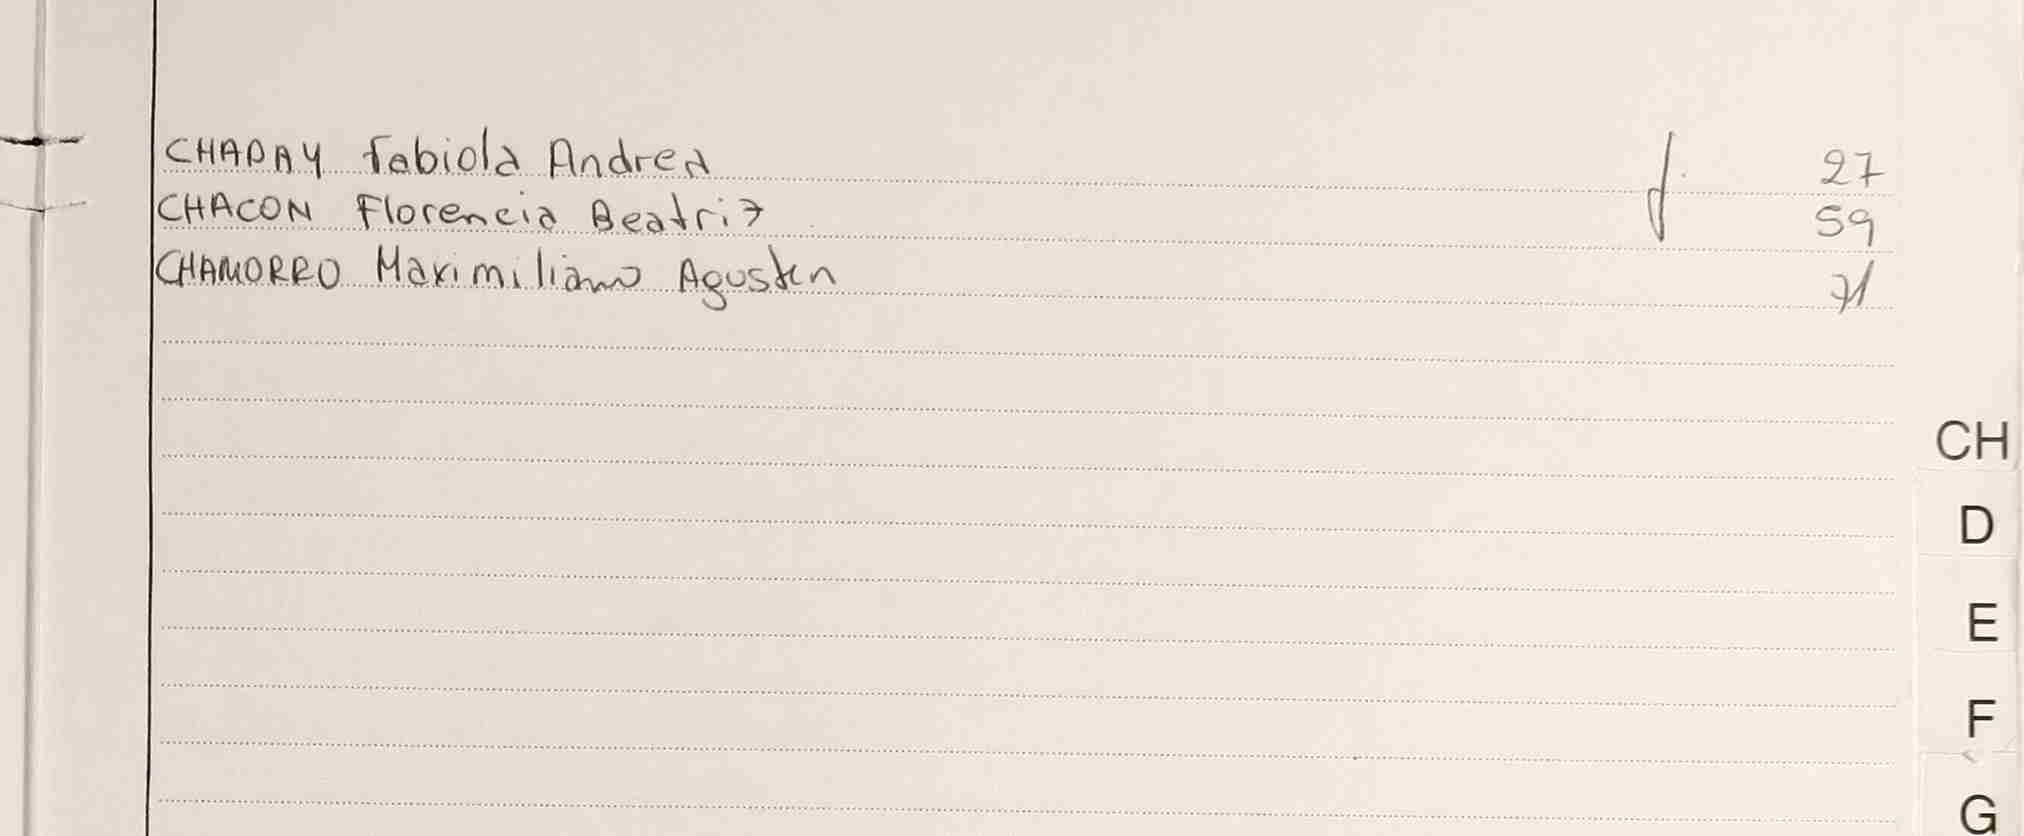 CHADAY Fabiola Andrea f. 27
CHACON Florencia Beatriz 59
CHAMORRO Maximiliano Agustin 71
CH
D
E
F
G